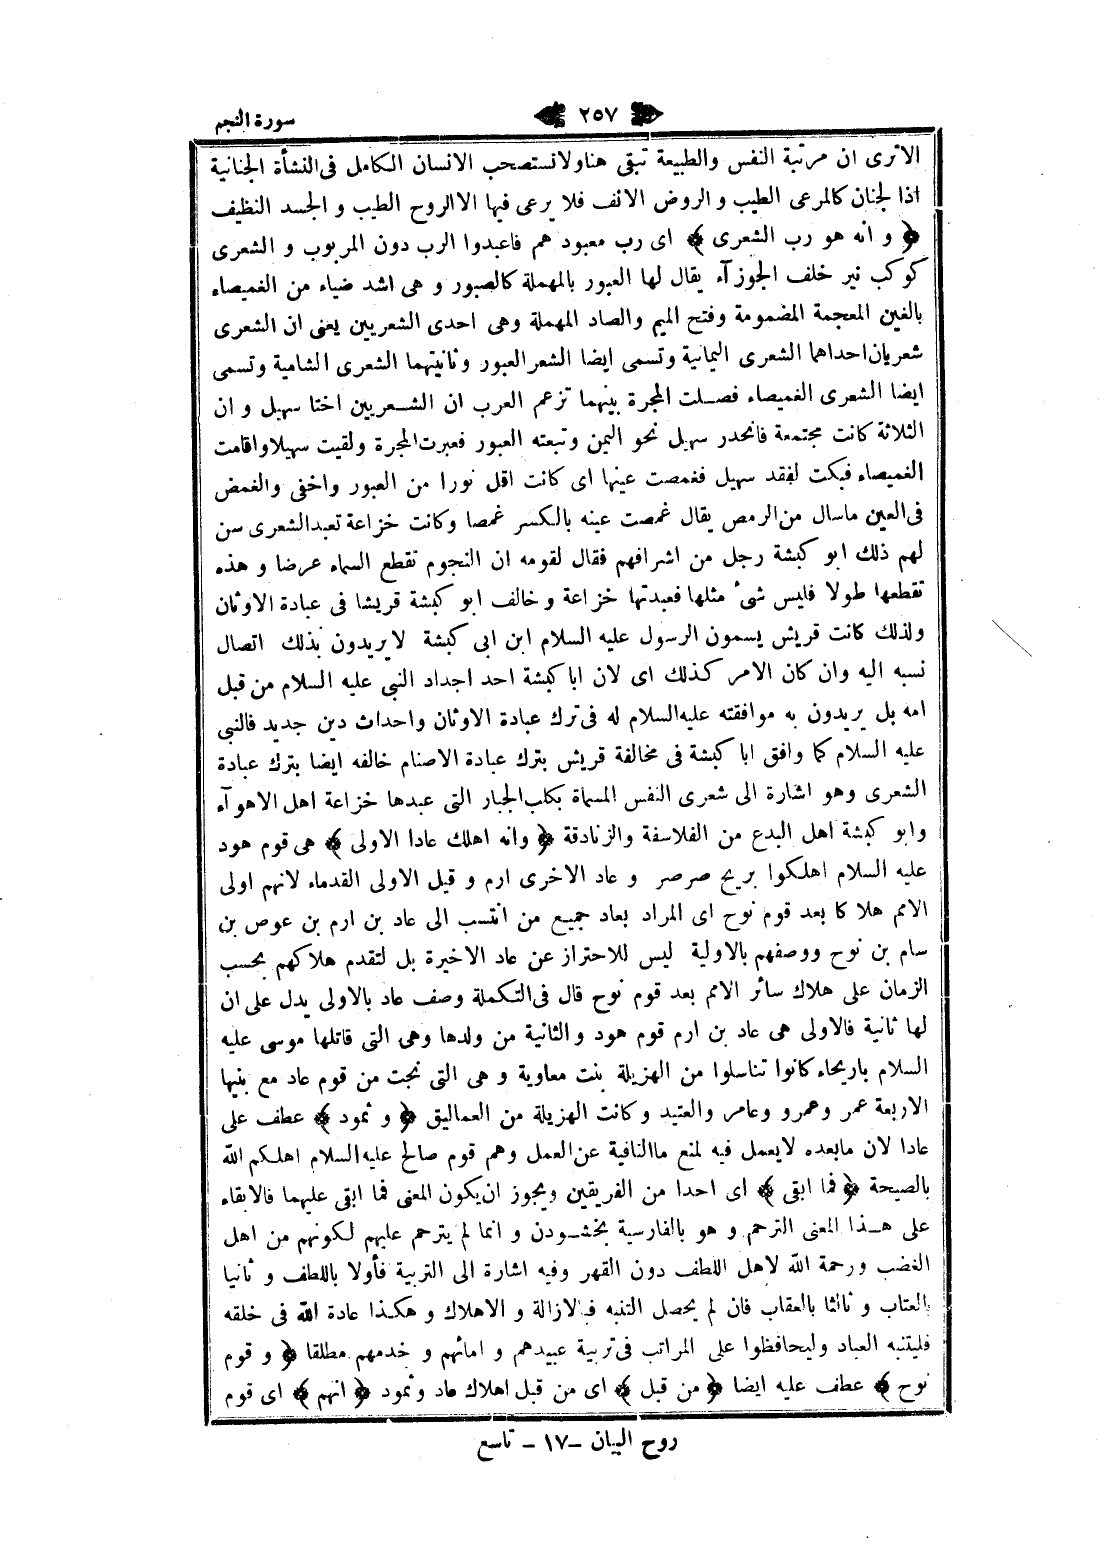 سورة النجم
٢٥٧
الاترى ان مرتبة النفس والطبيعة تبقى هناولاتستصحب الانسان الكامل فى النشأة الجنانية
اذا لجنان كالمرعى الطيب و الروض الانف فلا يرعى فيها الاالروح الطيب و الجسد النظيف
﴿ و انه هو رب الشعرى ﴾ اى رب معبود هم فاعبدوا الرب دون المربوب و الشعرى
كوكب نير خلف الجوزآء يقال لها العبور بالمهملة كالصبور و هى اشد ضياء من الغميصاء
بالغين المعجمة المضمومة وفتح الميم والصاد المهملة وهى احدى الشعريين يعنى ان الشعرى
شعريان احداهما الشعرى اليمانية وتسمى ايضا الشعر العبور وثانيتهما الشعرى الشامية وتسمى
ايضا الشعرى الغميصاء فصلت المجرة بينهما تزعم العرب ان الشعريين اختا سهيل و ان
الثلاثة كانت مجتمعة فانحدر سهيل نحو اليمن وتبعته العبور فعبرت المجرة ولقيت سهيلا واقامت
الغميصاء فبكت لفقد سهيل فغمصت عينها اى كانت اقل نورا من العبور واخفى والغمض
فى العين ماسال من الرمص يقال غمصت عينه بالكسر غمصا وكانت خزاعة تعبد الشعرى سن
لهم ذلك ابو كبشة رجل من اشرافهم فقال لقومه ان النجوم تقطع السماء عرضا و هذه
تقطعها طولا فليس شئ مثلها فعبدتها خزاعة و خالف ابو كبشة قريشا فى عبادة الاوثان
ولذلك كانت قريش يسمون الرسول عليه السلام ابن ابى كبشة لا يريدون بذلك اتصال
نسبه اليه وان كان الامر كذلك اى لان ابا كبشة احد اجداد النبى عليه السلام من قبل
امه بل يريدون به موافقته عليه السلام له فى ترك عبادة الاوثان واحداث دين جديد فالنبى
عليه السلام كما وافق ابا كبشة فى مخالفة قريش بترك عبادة الاصنام خالفه ايضا بترك عبادة
الشعرى وهو اشارة الى شعرى النفس المسماة بكلب الجبار التى عبدها خزاعة اهل الاهوآء
وابو كبشة اهل البدع من الفلاسفة والزنادقة ﴿ وانه اهلك عادا الاولى ﴾ هى قوم هود
عليه السلام اهلكوا بريح صرصر و عاد الاخرى ارم و قيل الاولى القدماء لانهم اولى
الامم هلا كا بعد قوم نوح اى المراد بعاد جميع من انتسب الى عاد بن ارم بن عوص بن
سام بن نوح ووصفهم بالاولية ليس للاحتراز عن عاد الاخيرة بل لتقدم هلاكهم بحسب
الزمان على هلاك سائر الامم بعد قوم نوح قال فى التكملة وصف عاد بالاولى يدل على ان
لها ثانية فالاولى هى عاد بن ارم قوم هود و الثانية من ولدها وهى التى قاتلها موسى عليه
السلام باريحاء كانوا تناسلوا من الهزيلة بنت معاوية و هى التى نجت من قوم عاد مع بنيها
الاربعة عمر وعمرو وعامر والعتيد و كانت الهزيلة من العماليق ﴿ و ثمود ﴾ عطف على
عادا لان مابعده لايعمل فيه لمنع ماالنافية عن العمل وهم قوم صالح عليه السلام اهلكم الله
بالصيحة ﴿ فما ابقى ﴾ اى احدا من الفريقين ويجوز ان يكون المعنى فما ابقى عليهما فالابقاء
على هذا المعنى الترحم و هو بالفارسية بخشودن و انما لم يترحم عليهم لكونهم من اهل
الغضب ورحمة الله لاهل اللطف دون القهر وفيه اشارة الى التربية فأولا باللطف و ثانيا
بالعتاب و ثالثا بالعقاب فان لم يحصل التنبه فبالازالة و الاهلاك و هكذا عادة الله فى خلقه
فليتنبه العباد وليحافظوا على المراتب فى تربية عبيدهم و امائهم و خدمهم مطلقا ﴿ و قوم
نوح ﴾ عطف عليه ايضا ﴿ من قبل ﴾ اى من قبل اهلاك عاد وثمود ﴿ انهم ﴾ اى قوم
روح البيان - ١٧ - تاسع